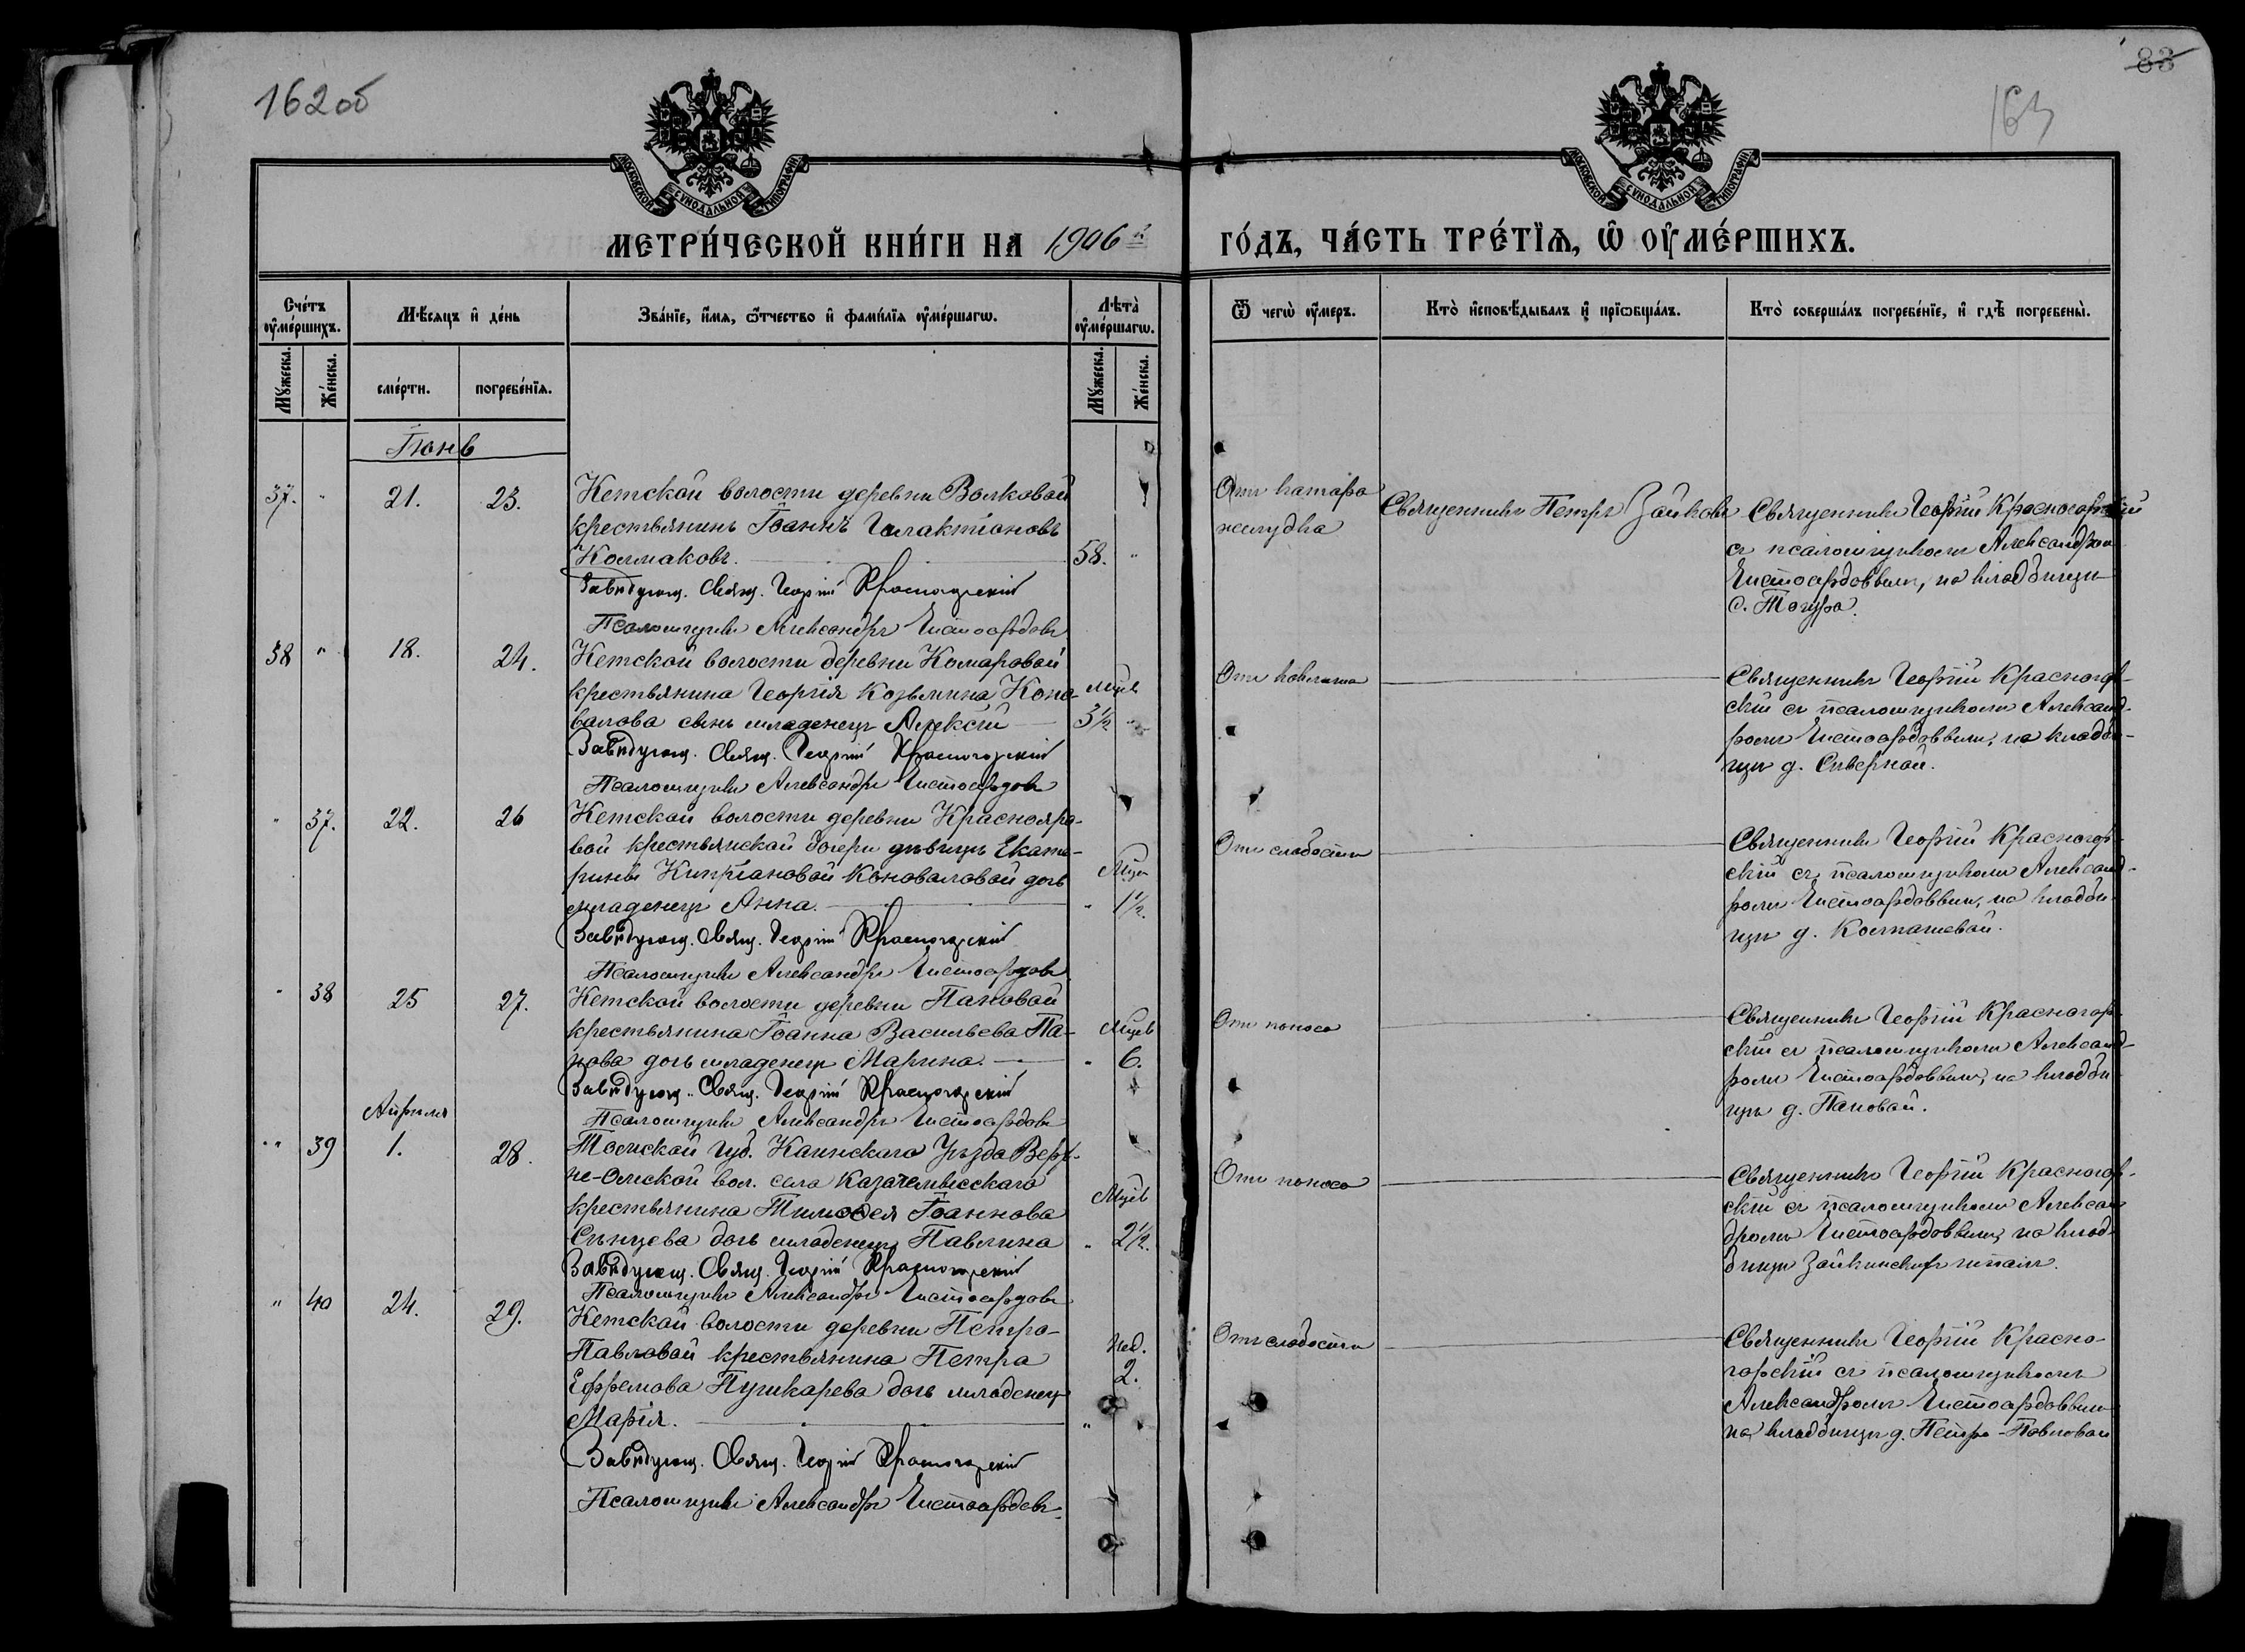 162об
88
163
МОСКОВСКОЙ СѴНОДАЛЬНОЙ ТИПОГРАФІИ
МОСКОВСКОЙ СѴНОДАЛЬНОЙ ТИПОГРАФІИ
МЕТРИ́ЧЕСКОЙ КНИ́ГИ НА 1906й ГО́ДЪ, ЧА́СТЬ ТРЕ́ТЇѦ, Ѡ ОУ҆МЕ́РШИХЪ.
Сче́тъ оу҆ме́ршихъ.
Мѣ́сяцъ и҆ де́нь
Зва́нїе, и҆́мя, ѻ҆́тчество и҆ фами́лїя оу҆ме́ршагѡ.
Лѣ́та̀ оу҆ме́ршагѡ.
Ѿ чегѡ̀ оу҆́меръ.
Кто̀ и҆сповѣ́дывалъ и҆ прїѡбща́лъ.
Кто̀ соверша́лъ погребе́нїе, и҆ гдѣ̀ погребены̀.
Мꙋ́жеска.
Же́нска.
сме́рти.
погребе́нїя.
Мꙋ́жеска.
Же́нска.
Іюнь
37. " 21. 23.
Кетской волости деревни Волковой
крестьянинъ Іоаннъ Галактіоновъ
Колмаковъ. 58. "
Завѣдующ. Свящ. Георгій Красногорскій
Псаломщикъ Александръ Чистосердовъ
Отъ катара
желудка
Священникъ Петръ Зайковъ
Священникъ Георгій Красногорскій
съ псаломщикомъ Александромъ
Чистосердовымъ, на кладбищѣ
с. Тогура.
38 " 18. 24.
Кетской волости деревни Комаровой
крестьянина Георгія Козьмина Коно-
валова сынъ младенецъ Алексій
Мцев
3½ "
Завѣдующ. Свящ. Георгій Красногорскій
Псаломщикъ Александръ Чистосердовъ
Отъ коклюша
Священникъ Георгій Красногор-
скій съ псаломщикомъ Александ-
ромъ Чистосердовымъ, на кладби-
щѣ д. Сѣверной.
" 37. 22. 26
Кетской волости деревни Краснояро-
вой крестьянской дочери дѣвицы Екате-
рины Кипріановой Коноваловой дочь
младенецъ Анна.
Мцъ
" 1½.
Завѣдующ. Свящ. Георгій Красногорскій
Псаломщикъ Александръ Чистосердовъ
Отъ слабости
Священникъ Георгій Красногор-
скій съ псаломщикомъ Александ-
ромъ Чистосердовымъ, на кладби-
щѣ д. Колпашевой.
" 38 25 27.
Кетской волости деревни Пановой
крестьянина Іоанна Васильева Па-
нова дочь младенецъ Марина.
Мцев
" 6.
Завѣдующ. Свящ. Георгій Красногорскій
Псаломщикъ Александръ Чистосердовъ
Отъ поноса
Священникъ Георгій Красногор-
скій съ псаломщикомъ Александ-
ромъ Чистосердовымъ, на кладби-
щѣ д. Пановой.
Апрѣля
" 39 1. 28.
Томской губ. Каинскаго Уѣзда Верх-
не-Омской вол. села Казачемысскаго
крестьянина Тимоѳея Іоаннова
Сѣнцева дочь младенецъ Павлина
Мцев
" 2½.
Завѣдующ. Свящ. Георгій Красногорскій
Псаломщикъ Александръ Чистосердовъ
Отъ поноса
Священникъ Георгій Красногор-
скій съ псаломщикомъ Алексан
дромъ Чистосердовымъ на клад-
бищѣ
" 40 24. 29.
Кетской волости деревни Петро-
Павловой крестьянина Петра
Ефремова Пушкарева дочь младенецъ
Марія.
нед.
2.
"
Завѣдующ. Свящ. Георгій Красногорскій
Псаломщикъ Александръ Чистосердовъ.
Отъ слабости
Священникъ Георгій Красно-
горскій съ псаломщикомъ
Александромъ Чистосердовымъ
на кладбищѣ д. Петро-Павловой